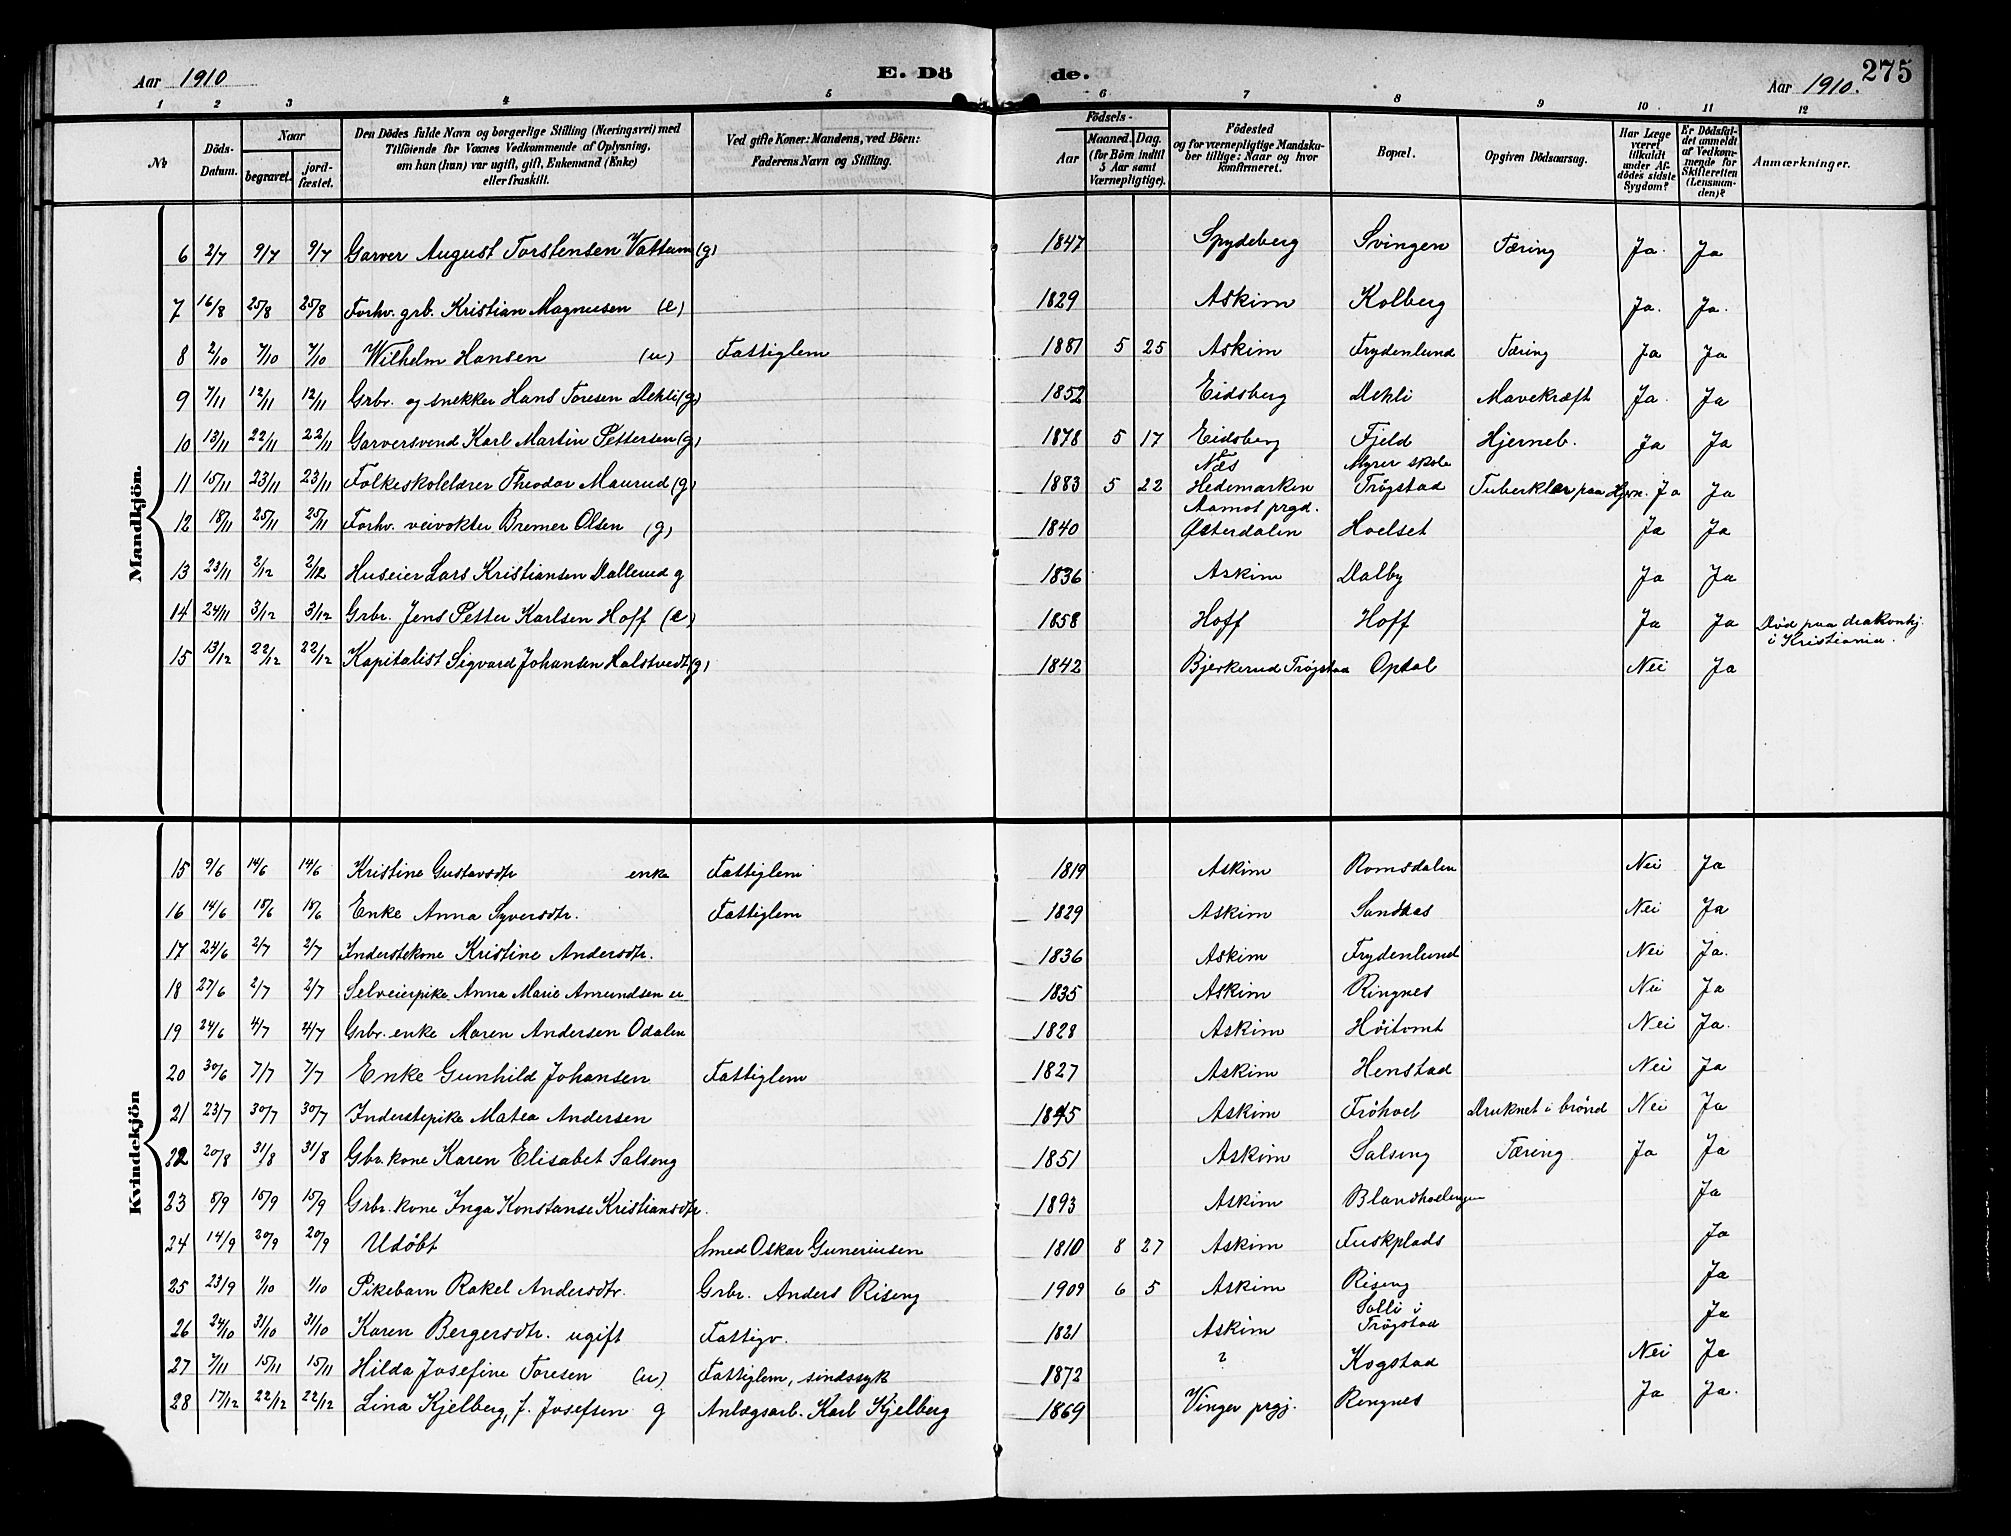 Aar 1910
E. Dö
de.
Aar 1910.
275
1 2 3 4 5 6 7 8 9 10 11 12
No
Döds-Datum.
Naar
begravet.
jord-fæstet.
Den Dödes fulde Navn og borgerlige Stilling (Næringsvei) med
Tilföiende for Voxnes Vedkommende af Oplysning,
om han (hun) var ugift, gift, Enkemand (Enke)
eller fraskilt.
Ved gifte Koner: Mandens, ved Börn:
Faderens Navn og Stilling.
Födsels-
Aar
Maaned. Dag.
(for Börn indtil
5 Aar samt
Værnepligtige).
Födested
og for værnepligtige Mandska-
ber tillige: Naar og hvor
konfirmeret.
Bopæl.
Opgiven Dödsaarsag.
Har Læge
været
tilkaldt
under Af-
dödes sidste
Sygdom?
Er Dödsfal-
det anmeldt
af Vedkom-
mende for
Skifteretten
(Lensman-
den)?
Anmærkninger.
Mandkjön.
6 2/7 9/7 9/7 Garver August Torstensen Vattum (g) 1847 Spydeberg Svingen Tæring Ja. Ja
7 16/8 25/8 25/8 Forhv. grb. Kristian Magnusen (e) 1829 Askim Kolberg Ja. Ja.
8 2/10 7/10 7/10 Wilhelm Hansen (u) Fattiglem 1881 5 25 Askim Frydenlund Tæring Ja Ja
9 7/11 12/11 12/11 Grbr. og snekker Hans Toresen Dehli (g) 1852 Eidsberg Dehli Mavekræft Ja. Ja
10 13/11 22/11 22/11 Garversvend Karl Martin Pettersen (g) 1878 5 17 Eidsberg Fjeld Hjerneb. Ja Ja
Næs Myrer skole
11 15/11 23/11 23/11 Folkeskolelærer Theodor Maurud (g) 1883 5 22 Hedemarken Trøgstad Tuberkler paa Hjrn. Ja Ja
Aamot prgd.
12 18/11 25/11 25/11 Forhv. veivokter Bremer Olsen (g) 1840 Østerdalen Hoelset Ja Ja
13 23/11 2/12 2/12 Huseier Lars Kristiansen Dallerud g 1836 Askim Dalby Ja Ja
14 24/11 3/12 3/12 Grbr. Jens Petter Karlsen Hoff (e) 1858 Hoff Hoff Ja Ja Død paa diakonhj.
i Kristiania.
15 13/12 22/12 22/12 Kapitalist Sigvard Johansen Halstvedt (g) 1842 Bjerkerud Trøgstad Optal Nei Ja
Kvindekjön
15 9/6 14/6 14/6 Kristine Gustavsdtr enke Fattiglem 1819 Askim Romsdalen Nei Ja
16 14/6 18/6 18/6 Enke Anna Syversdtr. Fattiglem 1829 Askim Sandaas Nei Ja
17 24/6 2/7 2/7 Inderstekone Kristine Andersdtr. 1836 Askim Frydenlund Nei Ja.
18 27/6 2/7 2/7 Selveierpike Anna Marie Amundsen u 1835 Askim Ringnes Nei Ja
19 24/6 4/7 4/7 Grbr. enke Maren Andersen Odalen 1828 Askim Høitomt Nei Ja.
20 30/6 7/7 7/7 Enke Gunhild Johansen Fattiglem 1827 Askim Henstad Nei Ja
21 23/7 30/7 30/7 Inderstepike Matea Andersen 1845 Askim Frøhoel Druknet i brønd Nei Ja
22 20/8 31/8 31/8 Gbr. kone Karen Elisabet Salseng 1851 Askim Salseng Tæring. Ja Ja
23 8/9 15/9 15/9 Grbr. kone Inga Konstanse Kristiansdtr. 1893 Askim Ja
24 14/9 20/9 20/9 Udøbt Smed Oskar Guneriusen 1810 8 27 Askim Fuskplads Ja
25 23/9 1/10 1/10 Pikebarn Rakel Andersdtr. Grbr. Anders Riseng 1909 6 5 Askim Riseng Ja
Solli i
26 24/10 31/10 31/10 Karen Bergersdtr. ugift Fattigv. 1821 Askim Trøgstad Ja
27 7/11 15/11 15/11 Hilda Josefine Toresen (u) Fattiglem, sindssyk 1872 ? Kogstad Nei Ja
28 17/12 22/12 22/12 Lina Kjelberg, f. Josefsen g Anlægsarb. Karl Kjelberg 1869 Vinger prgj. Rengnes Ja Ja.